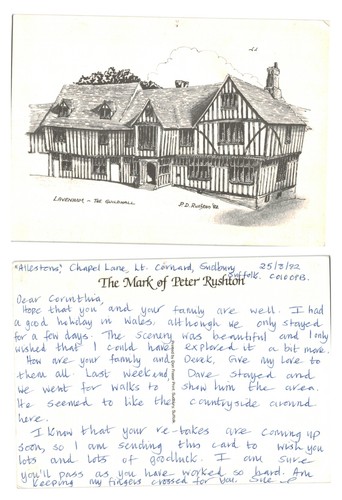 LAVENHAM - THE GUILDHALL
P.D. Rushton '86
"Allestons", Chapel Lane, Lt. Cornard, Sudbury
25/8/92
Suffolk. CO10 0PB.
The Mark of Peter Rushton
Dear Corinthia,
Hope that you and your family are well. I had
a good holiday in Wales, although we only stayed
for a few days. The scenery was beautiful and I only
wished that I could have explored it a bit more.
How are your family and Derek, Give my love to
them all. Last weekend, Dave stayed and
we went for walks to show him the area.
He seemed to like the countryside around
here.
I know that your re-takes are coming up
soon, so I am sending this card to wish you
lots and lots of goodluck. I am sure
you'll pass as you have worked so hard. Am
keeping my fingers crossed for you. Sue